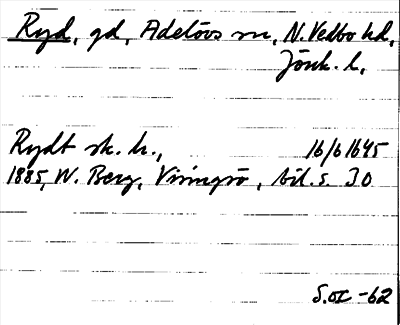 Ryd, gd, Adelövs sn, N. Vedbo hd,
Jönk. l.
Rydt sk. h., 16/6 1645
1885, W. Berg, Visingsö, bil. s. 30
S.Ox -62